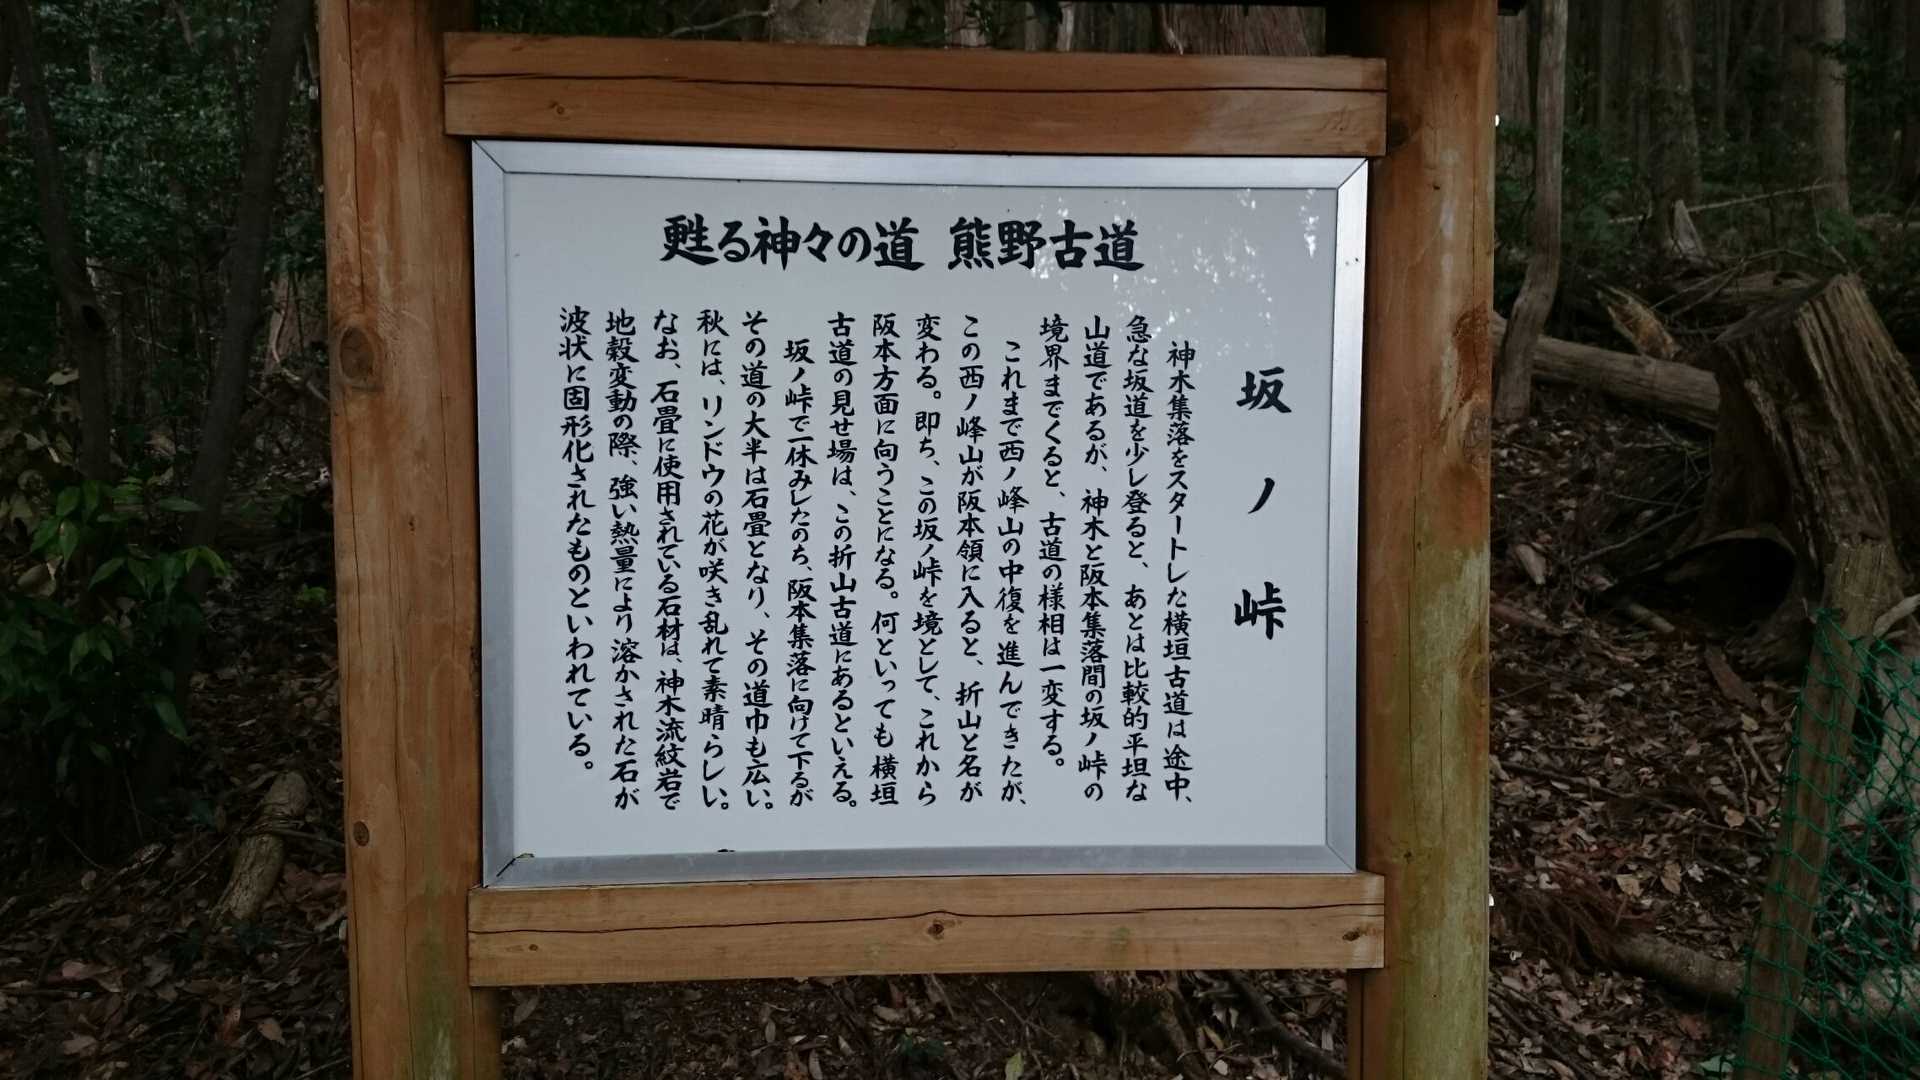 甦る神々の道 熊野古道
坂ノ峠
神木集落をスタートした横垣古道は途中、
急な坂道を少し登ると、あとは比較的平坦な
山道であるが、神木と阪本集落間の坂ノ峠の
境界までくると、古道の様相は一変する。
これまで西ノ峰山の中復を進んできたが、
この西ノ峰山が阪本領に入ると、折山と名が
変わる。即ち、この坂ノ峠を境として、これから
阪本方面に向うことになる。何といっても横垣
古道の見せ場は、この折山古道にあるといえる。
坂ノ峠で一休みしたのち、阪本集落に向けて下るが
その道の大半は石畳となり、その道巾も広い。
秋には、リンドウの花が咲き乱れて素晴らしい。
なお、石畳に使用されている石材は、神木流紋岩で
地殻変動の際、強い熱量により溶かされた石が
波状に固形化されたものといわれている。